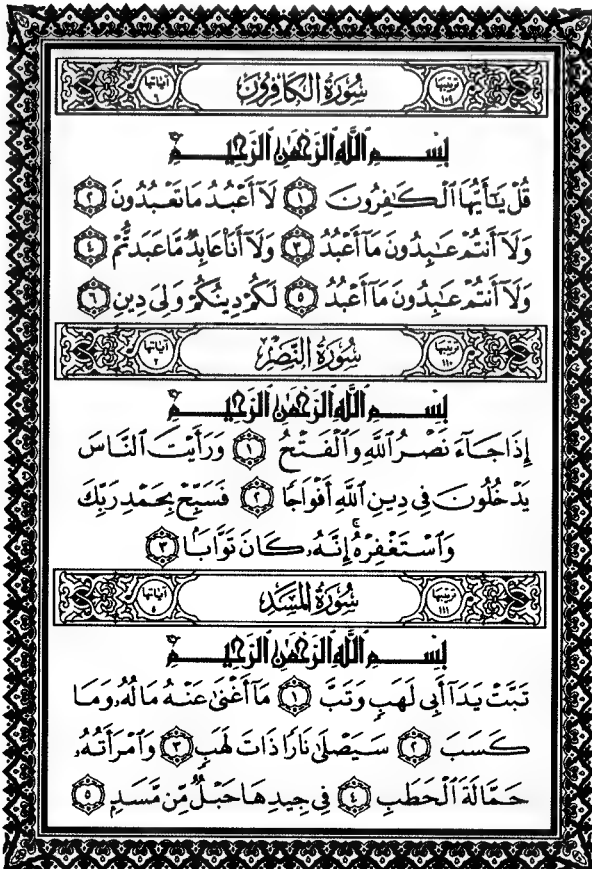 ترتيبها ١٠٩ سُورَةُ الكَافِرُون آياتها ٦
بِسْمِ ٱللَّهِ ٱلرَّحْمَٰنِ ٱلرَّحِيمِ
قُلْ يَٰٓأَيُّهَا ٱلْكَٰفِرُونَ ١ لَآ أَعْبُدُ مَا تَعْبُدُونَ ٢
وَلَآ أَنتُمْ عَٰبِدُونَ مَآ أَعْبُدُ ٣ وَلَآ أَنَا۠ عَابِدٌ مَّا عَبَدتُّمْ ٤
وَلَآ أَنتُمْ عَٰبِدُونَ مَآ أَعْبُدُ ٥ لَكُمْ دِينُكُمْ وَلِىَ دِينِ ٦
ترتيبها ١١٠ سُورَةُ النَّصْرِ آياتها ٣
بِسْمِ ٱللَّهِ ٱلرَّحْمَٰنِ ٱلرَّحِيمِ
إِذَا جَآءَ نَصْرُ ٱللَّهِ وَٱلْفَتْحُ ١ وَرَأَيْتَ ٱلنَّاسَ
يَدْخُلُونَ فِى دِينِ ٱللَّهِ أَفْوَاجًا ٢ فَسَبِّحْ بِحَمْدِ رَبِّكَ
وَٱسْتَغْفِرْهُ ۚ إِنَّهُۥ كَانَ تَوَّابًۢا ٣
ترتيبها ١١١ سُورَةُ المَسَدِ آياتها ٥
بِسْمِ ٱللَّهِ ٱلرَّحْمَٰنِ ٱلرَّحِيمِ
تَبَّتْ يَدَآ أَبِى لَهَبٍ وَتَبَّ ١ مَآ أَغْنَىٰ عَنْهُ مَالُهُۥ وَمَا
كَسَبَ ٢ سَيَصْلَىٰ نَارًا ذَاتَ لَهَبٍ ٣ وَٱمْرَأَتُهُۥ
حَمَّالَةَ ٱلْحَطَبِ ٤ فِى جِيدِهَا حَبْلٌ مِّن مَّسَدٍۭ ٥